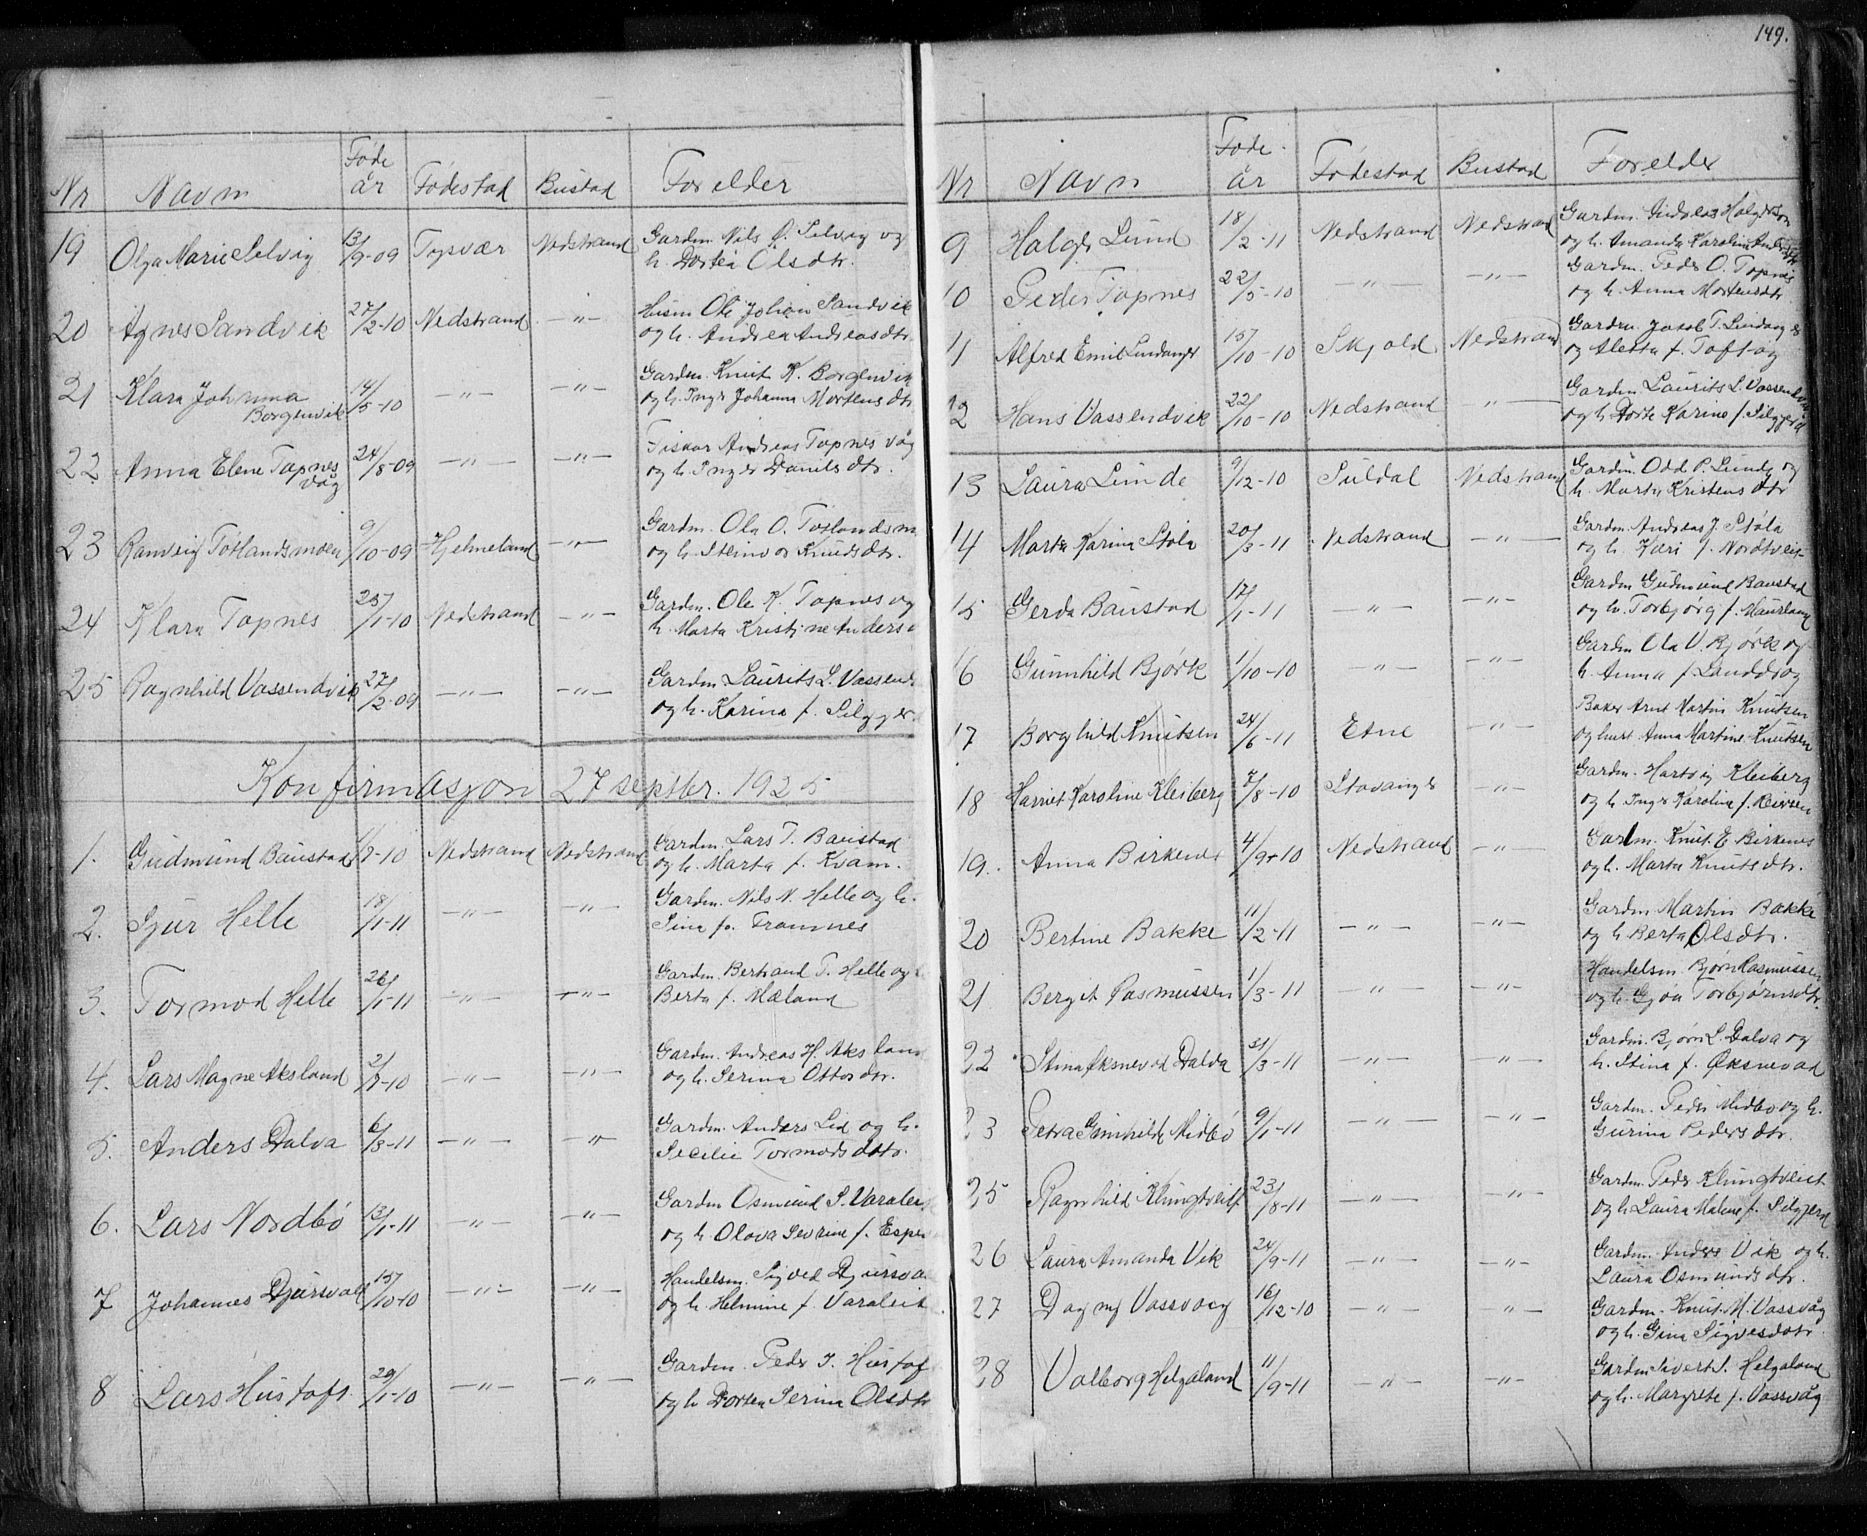 149.
Nr Navn Føde år Fødestad Bustad Forelder
19 Olga Marie Selvig 13/9-09 Tysvær Nedstrand Gardm. Nils O. Selvig og
h. Dortea Olsdtr.
20 Agnes Sandvik 27/2-10 Nedstrand -"- Husm Ole Johan Sandvik
og h. Andrea Andreasdtr.
21 Klara Johanna 14/5-10 -"- -"- Gardm. Knut K. Borgenvik
Borgenvik og h. Inger Johanna Mortensdtr
22 Anna Elene Topnes 24/8-09 -"- -"- Fiskar Andreas Topnesvåg
våg og h. Inger Danielsdtr.
23 Ranveig Totlandsmoen 9/10-09 Hjelmeland -"- Gardm. Ola O. Totlandsm
og h. Steinvor Knudsdtr.
24 Klara Topnes 25/1-10 Nedstrand -"- Gardm. Ole K. Topnes og
h. Marta Kristine Anders
25 Ragnhild Vassendvik 27/2-09 -"- -"- Gardm. Laurits L. Vassend
og h. Karina f. Selgger
Konfirmasjon 27 septbr. 1925
1. Gudmund Baustad /7-10 Nedstrand Nedstrand Gardm. Lars T. Baustad
og h. Marta f. Kvam.
2. Sjur Helle 18/1-11 -"- -"- Gardm. Nils N. Helle og h.
Sina f. Tramnes
3. Tormod Helle 26/1-11 -"- -"- Gardm. Bertrand T. Helle og
Berta f. Mæland
4. Lars Magne Aksland 2/7-10 -"- -"- Gardm. Andreas H. Aksland
og h. Serina Ottosdtr.
5. Anders Dalva 6/3-11 -"- -"- Gardm. Anders Lid og h.
Secilie Tormodsdotr.
6. Lars Nordbø 13/1-11 -"- -"- Gardm Osmund S. Varalei
og h Olava Sevrine f. Espe
7 Johannes Djursvoll 15/10-10 -"- -"- Handelsm. Sigved Djursvo
og h. Helmine f. Varaleit
8 Lars Hustoft 29/1-10 -"- -"- Gardm. Peder J. Hustof
og h Dortea Serina Olsdtr
Nr Navn Føde år Fødestad Bustad Forelder
9 Holger Lund 18/2-11 Nedstrand Nedstrand Gardm. Andreas Holgerson
og h. Amanda Karoline
10 Peder Topnes 22/5-10 -"- -"- Gardm. Peder O. Topnes
og h. Anna Mortensdtr
11 Alfred Emil Lindanger 15/10-10 Skjold Nedstrand Gardm. Jakob T. Lindanger
og Aletta f. Toftøy
12 Hans Vassendvik 22/10-10 Nedstrand -"- Gardm. Laurits L. Vassendvik
og h Dorte Karine f. Selgjerd
13 Laura Lunde 9/12-10 Suldal Nedstrand Gardm. Odd P. Lunde og
h. Marta Kristensdtr
14 Marta Karina Støle 20/3-11 Nedstrand -"- Gardm. Andreas J. Støle
og h. Kari f. Nordtveit
15 Gerda Baustad 17/1-11 -"- -"- Gardm Gudmund Baustad
og h. Torbjørg f. Mauland
16 Gunnhild Bjørk 1/10-10 -"- -"- Gardm Ola V. Bjørk og
h. Anna f.
17 Borghild Knutsen 24/6-11 Etne -"- Baker Arnt Martin Knutsen
og hust Anna Martine Knutsen
18 Harriet Karoline Kleiberg 7/8-10 Stavanger -"- Gardm. Hartvig Kleiberg
og h Inger Karolina f.
19. Anna Birkenes 4/9-10 Nedstrand -"- Gardm. Knut E Birkenes
og h. Marta Knutsdtr.
20 Bertine Bakke 11/2-11 -"- -"- Gardm Martin Bakke
og h Berta Olsdtr.
21 Bergit Rasmussen 1/3-11 -"- -"- Handelsm. Bjørn Rasmussen
og h. Gjøa Torbjørnsdtr.
22 Stina Øksnevad Dalva 31/3-11 -"- -"- Gardm. Bjørn L. Dalva og
h. Stina f. Øksnevad
23 Petra Gunhild Midbø 9/1-11 -"- -"- Gardm. Peder Midbø og h.
Gurina Pedersdtr.
25 Ragnhild Klungtveit 23/8-11 -"- -"- Gardm. Peder Klungtveit
og h Laura Malene f. Selgjerd
26 Laura Amanda Vik 24/9-11 -"- -"- Gardm. Anders Vik og h.
Laura Osmundsdtr.
27 Dagny Vassvaag 16/12-10 -"- -"- Gardm. Knut M. Vassvåg
og h. Gina Sigvesdotr.
28 Valborg Helgaland 11/9-11 -"- -"- Gardm Sivert S. Helgaland
og h. Margrete f. Vassvåg